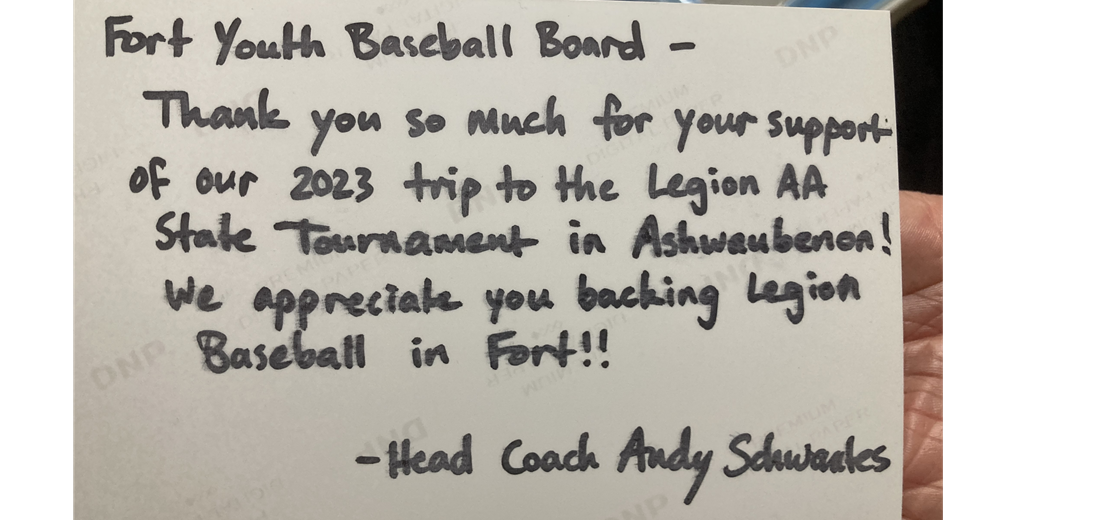 Fort Youth Baseball Board -
Thank you so much for your support
of our 2023 trip to the Legion AA
State Tournament in Ashwaubenon!
We appreciate you backing Legion
Baseball in Fort!!
-Head Coach Andy
DNP
DNP
DNP
DNP